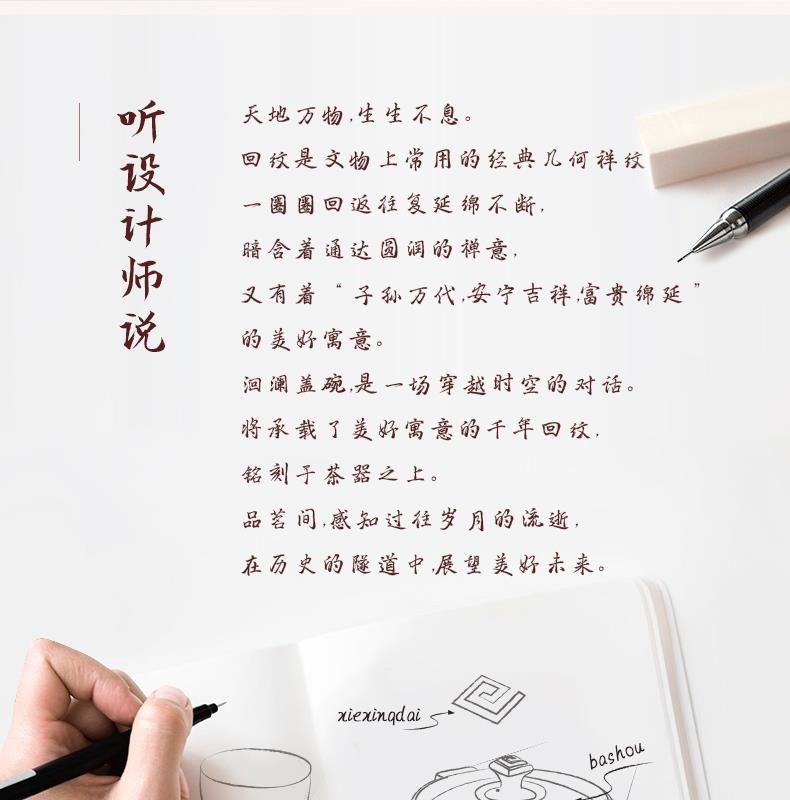 听设计师说
天地万物,生生不息。
回纹是文物上常用的经典几何祥纹
一圈圈回返往复延绵不断,
暗含着通达圆润的禅意,
又有着“子孙万代,安宁吉祥,富贵绵延”
的美好寓意。
洄澜盖碗,是一场穿越时空的对话。
将承载了美好寓意的千年回纹,
铭刻于茶器之上。
品茗间,感知过往岁月的流逝,
在历史的隧道中,展望美好未来。
xiexingdai
bashou